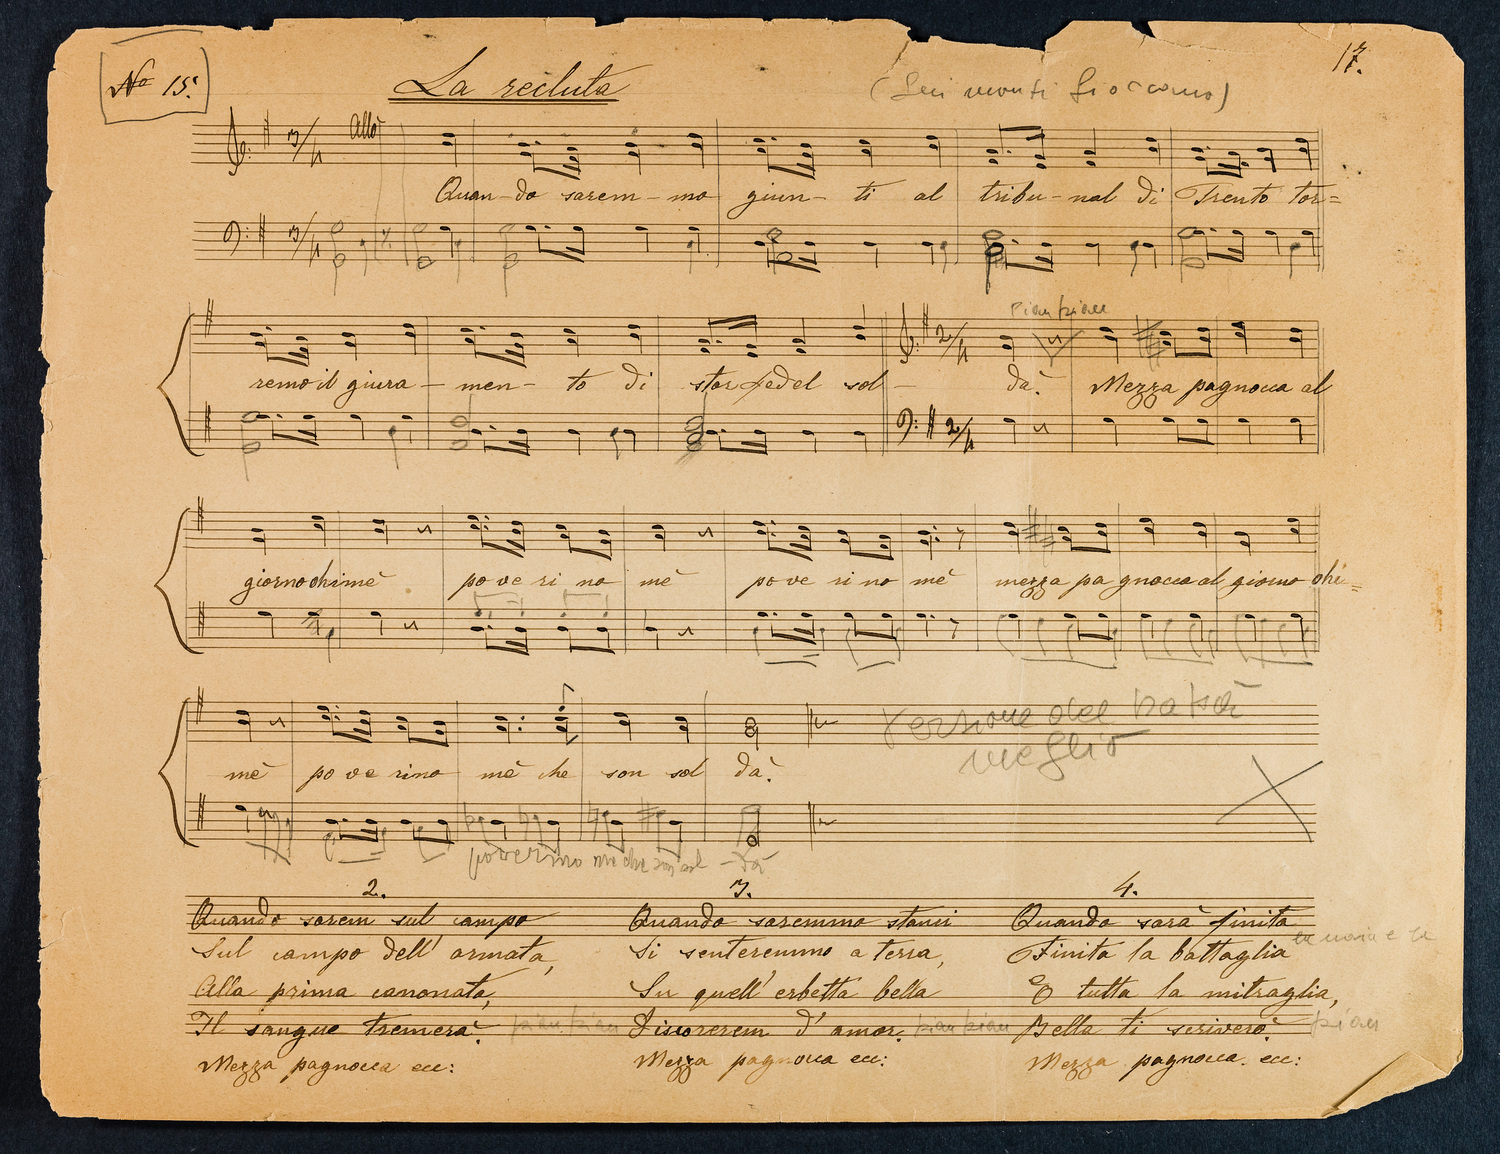 No 15.
17.
La recluta
Allo
3/4
Quan-do sarem-mo giun-ti al tribu-nal di Trento tor=
3/4
pian pian
2/4
remo il giura-men-to di star fedel sol-dà. Mezza pagnocca al
2/4
giorno ohimè po ve ri no mè po ve ri no mè mezza pa gnocca al giorno ohi=
Versione del
meglio
mè po ve rino mè che son sol dà.
poverino me che son sol-dà
2.
Quando sarem sul campo
Sul campo dell' armata,
Alla prima canonata,
Il sangue tremerà. pian pian
Mezza pagnocca ecc:
3.
Quando saremmo stanci
Si senteremmo a terra,
Su quell' erbetta bella
Discorerem d' amor. pian pian
Mezza pagnocca ecc:
4.
Quando sarà finita
Finita la battaglia
E tutta la mitraglia,
Bella ti scriverò. pian
Mezza pagnocca. ecc: